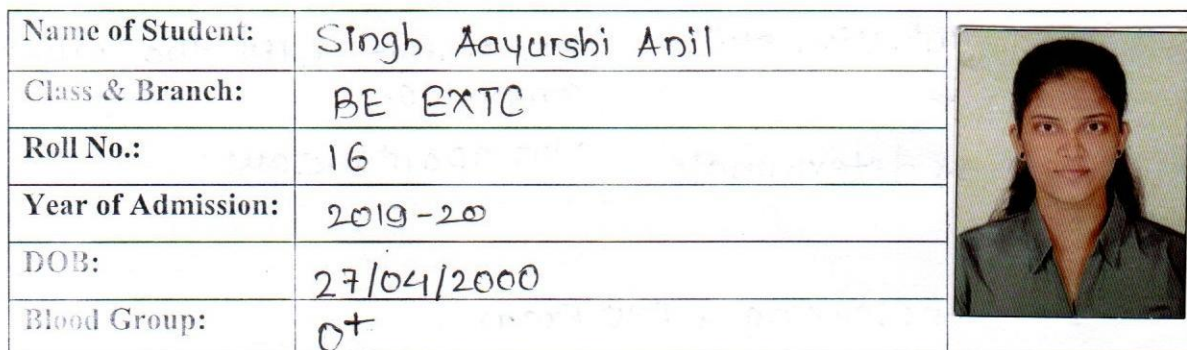 Name of Student: Singh Aayurshi Anil
Class & Branch: BE EXTC
Roll No.: 16
Year of Admission: 2019-20
DOB: 27/04/2000
Blood Group: O+